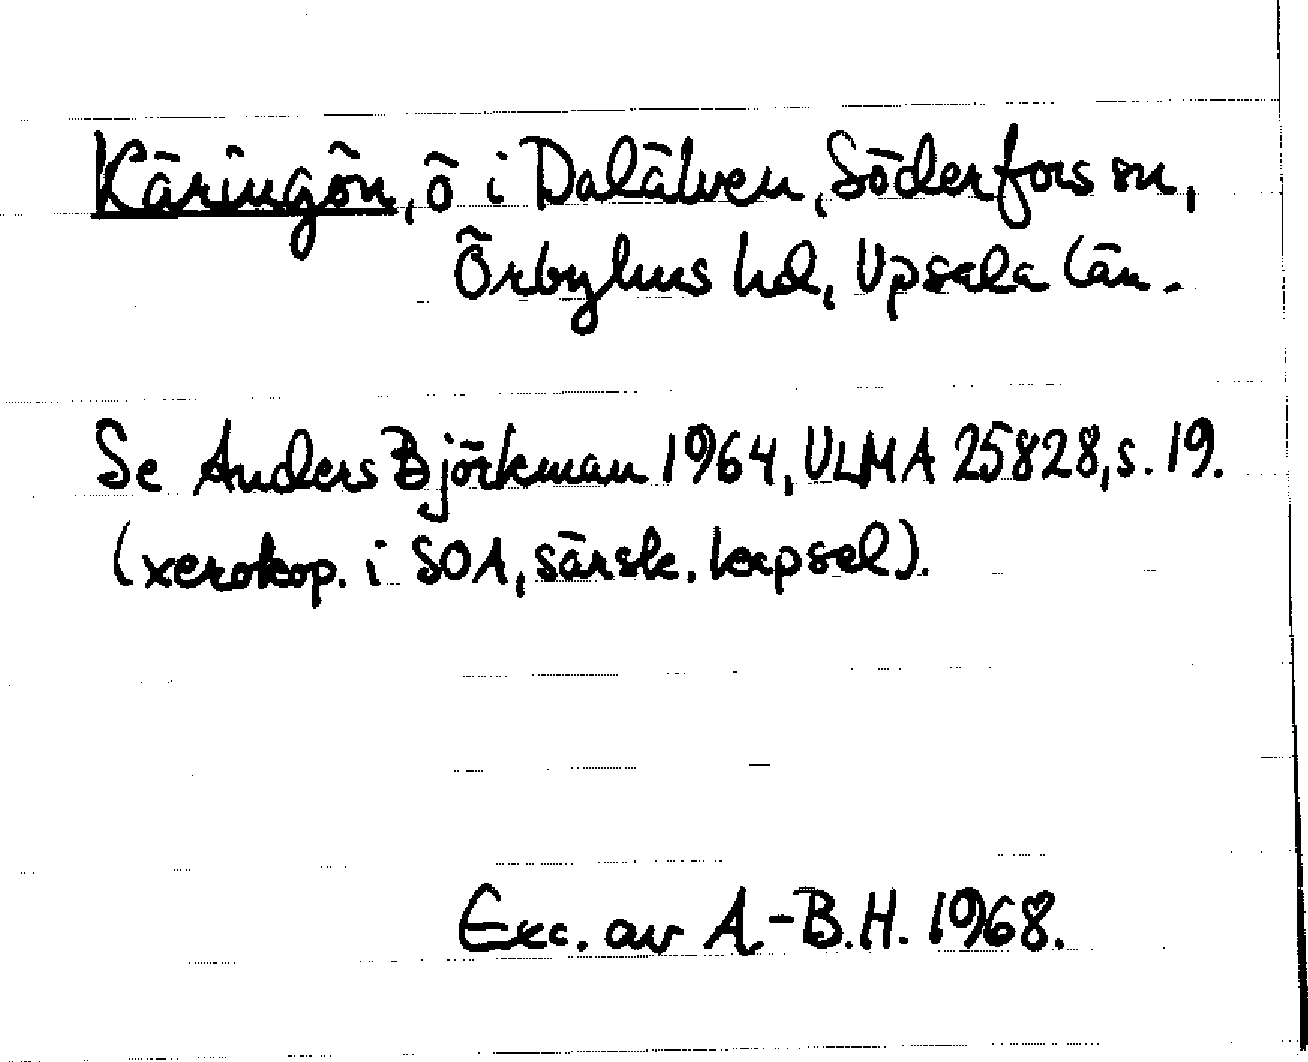 Käringön, ö i Dalälven, Söderfors sn,
Örbyhus hd, Upsala län.
Se Anders Björkman 1964, ULMA 25828, s. 19.
(xerokop. i SOA, särsk. kapsel).
Exc. av A.-B.H. 1968.